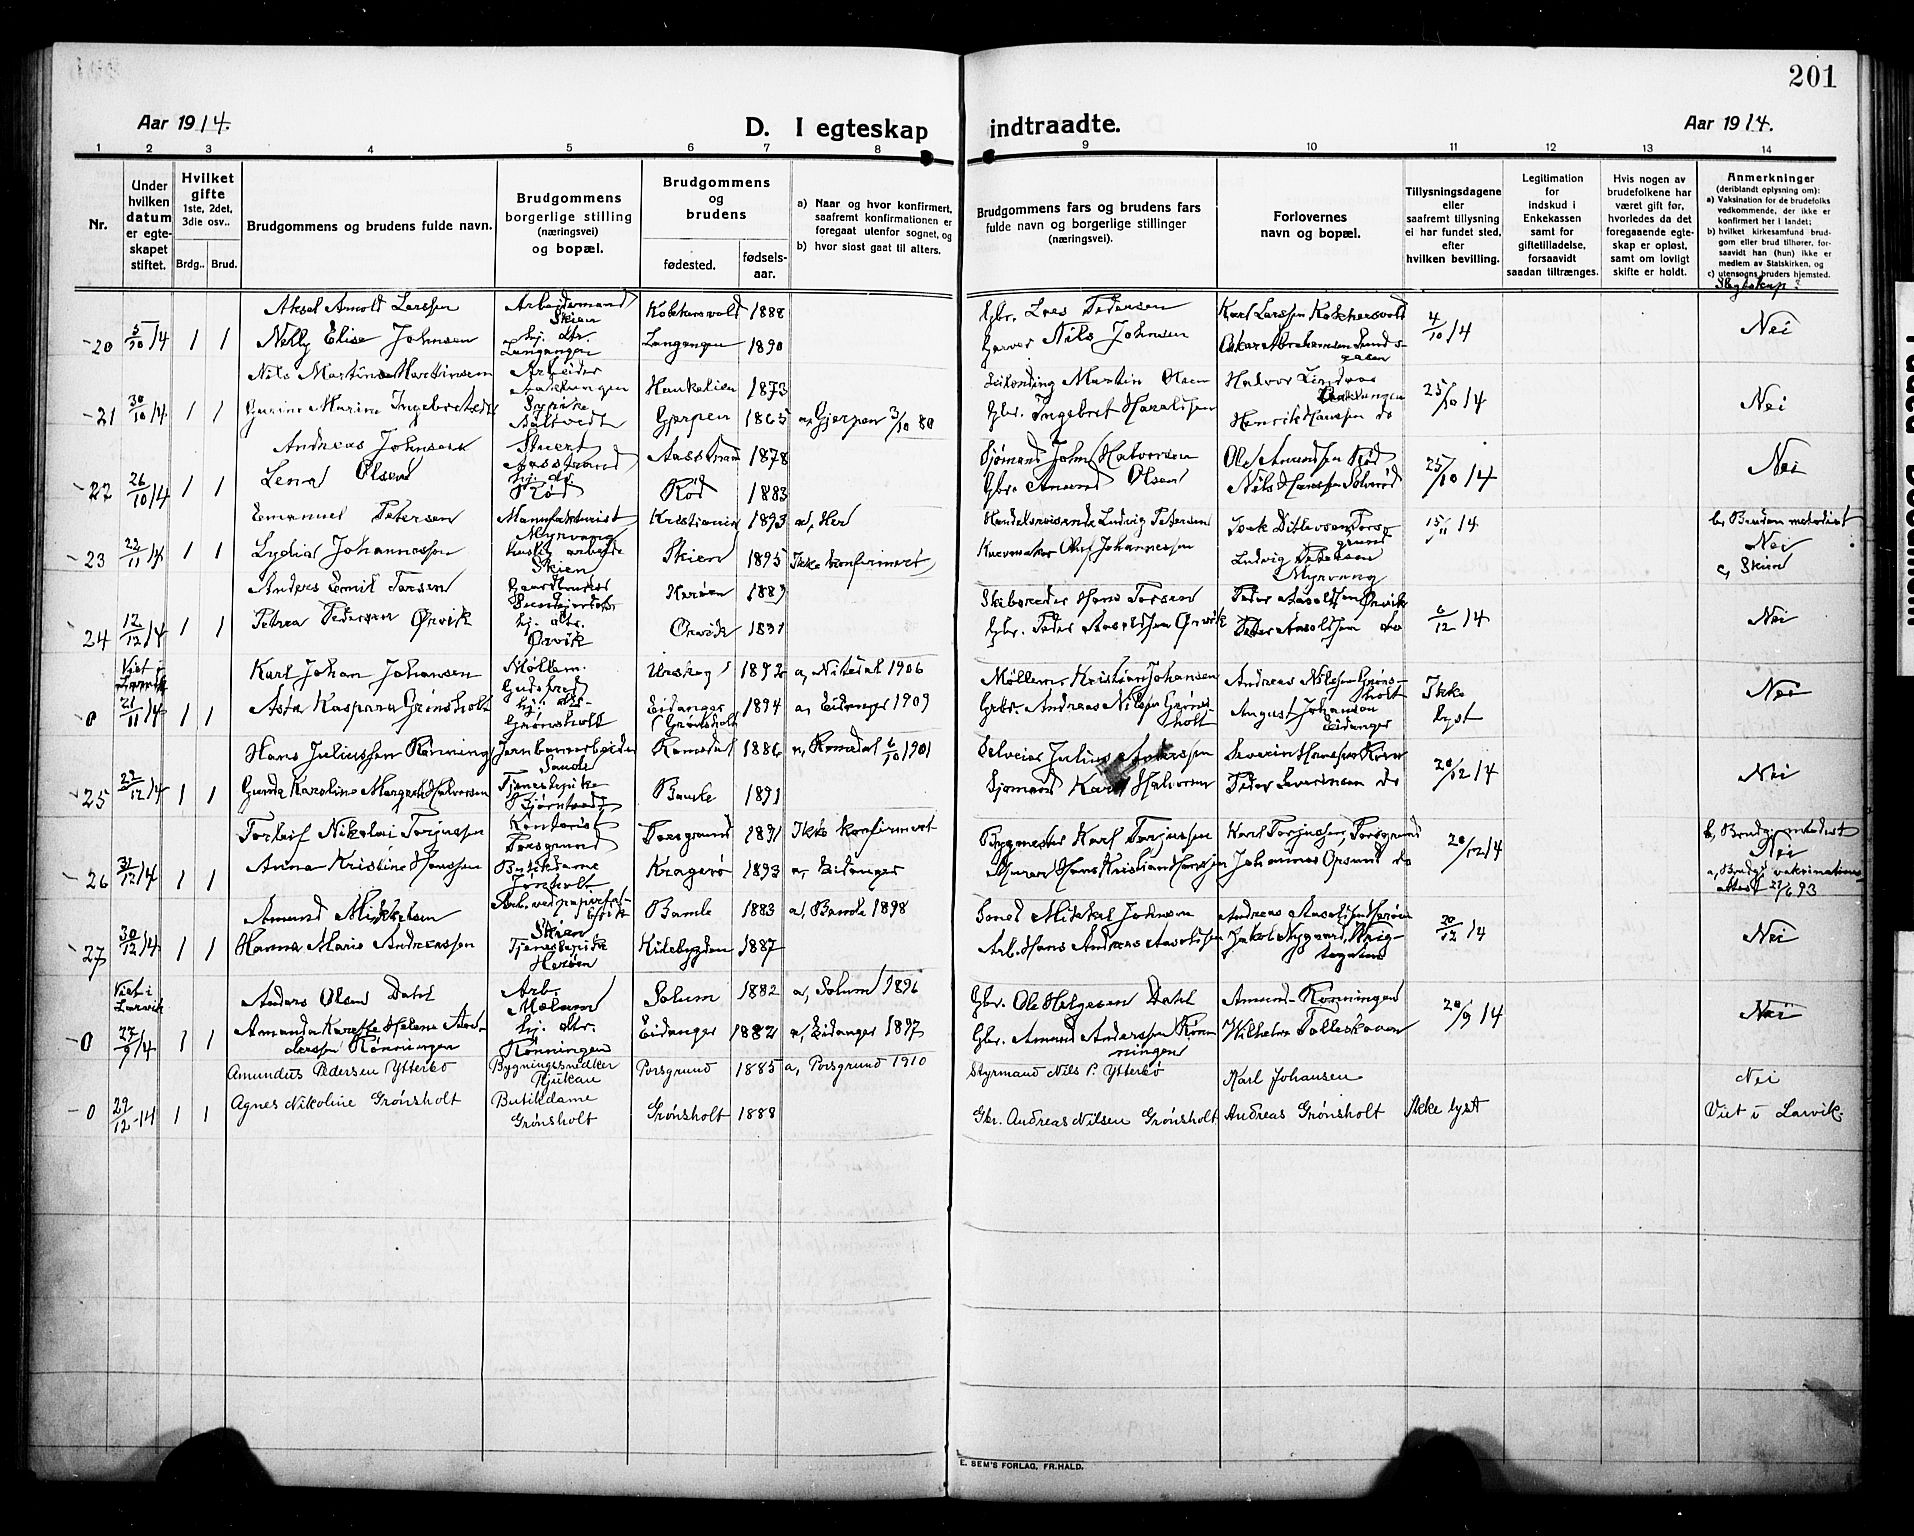 201
Aar 1914.
D. I egteskap indtraadte.
Aar 1914.
1 2 3 4 5 6 7 8 9 10 11 12 13 14
Nr.
Under hvilken datum er egteskapet stiftet.
Hvilket gifte 1ste, 2det, 3die osv..
Brdg.. Brud.
Brudgommens og brudens fulde navn.
Brudgommens borgerlige stilling (næringsvei) og bopæl.
Brudgommens og brudens
fødested. fødselsaar.
a) Naar og hvor konfirmert, saafremt konfirmationen er foregaat utenfor sognet, og
b) hvor sidst gaat til alters.
Brudgommens fars og brudens fars fulde navn og borgerlige stillinger (næringsvei).
Forlovernes navn og bopæl.
Tillysningsdagene eller saafremt tillysning ei har fundet sted, efter hvilken bevilling.
Legitimation for indskud i Enkekassen samt for giftetilladelse, forsaavidt saadan tiltrænges.
Hvis nogen av brudefolkene har været gift før, hvorledes da det foregaaende egteskap er opløst, samt om lovligt skifte er holdt.
Anmerkninger (deriblandt oplysning om):
a) Vaksination for de brudefolks vedkommende, der ikke er konfirmert her i landet;
b) hvilket kirkesamfund brudgom eller brud tilhører, forsaavidt han (hun) ikke er medlem av Statskirken, og
c) utensogns bruders hjemsted.
Slegtskap?
Aksel Arnold Larssen Arbeidsmand Skien 1888 Gbr. Lars Pedersen Karl Larssen
20 5/10 14 1 1 Nelly Elise Johnsen hj. dtr. Langangen Langangen 1890 Garver Nils Johnsen Oskar Abrahamsen 4/10 14 Nei
Nils Martin Martinsen Arbeider 1873 Martin Olsen Halvor
21 30/10 14 1 1 Gurine Marine Ingebretsdtr Gjerpen 1865 a, Gjerpen 3/10 80 Gbr. Ingebret Haraldsen Henrik Hanssen do 25/10 14 Nei
Andreas Johnsen Stuert Aasstrand Aasstrand 1878 Sjømand John Halvorsen Ole Amundsen Rød
22 26/10 14 1 1 Lena Olsen hj. dtr. Rød Rød 1883 Gbr. Amund Olsen Nils Hanssen 25/10 14 Nei
Emanuel Petersen Manufakturist Myrvang Kristiania 1893 a, Her Handelsreisende Ludvig Petersen 15/11 14 b, Bruden metodist
23 22/11 14 1 1 Lydia Johannessen Skien Skien 1895 Ikke konfirmert Kurvmaker Olaf Johannessen Ludvig Petersen Myrvang Nei
c, Skien
Anders Emil Torsen Herøen 1889 Skibsreder Hans Torsen Peder Aasoldsen Ørvik
24 12/12 14 1 1 Petrea Pedersen Ørvik hj. dtr. Ørvik Ørvik 1891 Gbr. Peder Aasoldsen Ørvik Peter Aasoldsen do 6/12 14 Nei
Viet i Larvik
Karl Johan Johansen Møllem. Urskog 1892 a, Nitedal 1906 Møllem. Kristian Johansen Andreas Nilsen Grønsholt
0 21/11 14 1 1 Asta Kaspara Grønsholt hj. dtr. Grønsholt Eidanger (Grønsholt) 1894 a, Eidanger 1909 Grbr. Andreas Nilsen Grønsholt August Johansen Eidanger Ikke lyst Nei
Hans Juliussen Rønning Jernbanearbeider Sande Romedal 1886 a, Romedal 6/10 1901 Selveier Julius Severin Hanssen
25 22/12 14 1 1 Gunda Karoline Margrete Halvorsen Tjenestepike Bjørntvedt Bamle 1891 Sjømand Karl Halvorsen Peder Severinsen do 20/12 14 Nei
Torleif Nikolai Torjussen Kontorist Porsgrund Porsgrund 1891 Ikke konfirmert Bygmester Karl Torjussen Karl Torjussen, Porsgrund b, Brudg. metodist
26 31/12 14 1 1 Anna Kristine Hanssen Butikdame Kragerø 1893 a, Eidanger Murer Hans Kristian Hanssen Johannes do 20/12 14 Nei
a, Brudg. vakcinationsattest
Amund Mikkelsen Arb. ved papirfabrik Skien Bamle 1883 a, Bamle 1898 Smed Mikkel Johnsen Andreas Aasoldsen Herøen
27 30/12 14 1 1 Hanna Marie Andreassen Tjenestepike Herøen Kilebygden 1887 Arb. Hans Andreas Aasoldsen Jakob Nygaard 20/12 14 Nei
Viet i Larvik
Anders Olsen Dahl Arb. Solum 1882 a, Solum 1896 Gbr. Ole Helgesen Dahl Amund Rønningen
0 27/9 14 1 1 Amanda Karette Helene Anderssen Rønningen hj. dtr. Rønningen Eidanger 1882 a, Eidanger 1897 Gbr. Amund Anderssen Rønningen Wilhelm 20/9 14 Nei
Amundus Pedersen Ytterbø Bygningssnedker Rjukan Porsgrund 1885 a, Porsgrund 1910 Styrmand Nils P. Ytterbø Karl Johansen Nei
0 29/12 14 1 1 Agnes Nikoline Grønsholt Butikdame Grønsholt Grønsholt 1888 Gbr. Andreas Nilsen Grønsholt Andreas Grønsholt Ikke lyst Viet i Larvik.
E. SEM'S FORLAG, FR.HALD.